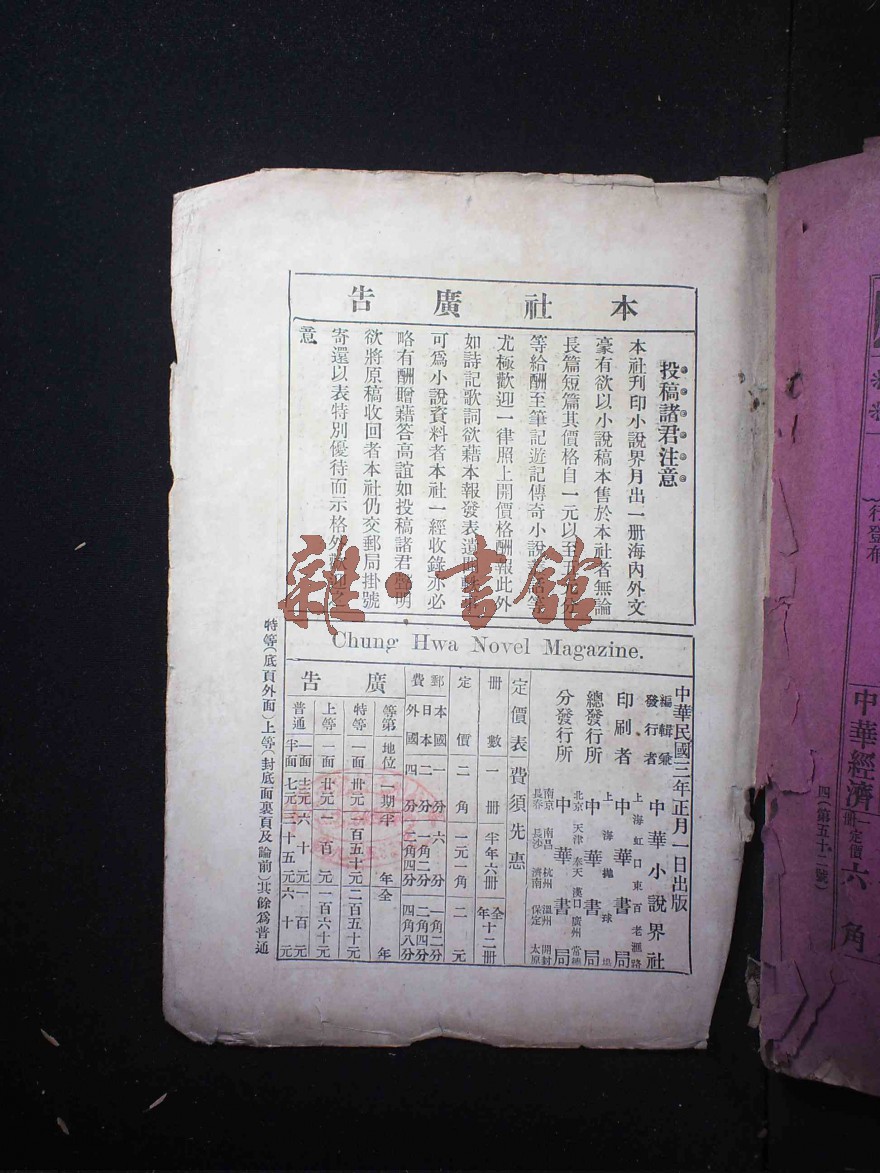 本社廣告
投稿諸君注意
本社刊印小說界月出一册海內外文
豪有欲以小說稿本售於本社者無論
長篇短篇其價格自一元以至五元分
等給酬至筆記遊記傳奇小說
尤極歡迎一律照上開價格酬報此外
如詩記歌詞欲藉本報發表遺聞
可爲小說資料者本社一經收錄亦必
略有酬贈藉答高誼如投稿諸君聲明
欲將原稿收回者本社仍交郵局掛號
寄還以表特別優待而示格外歡迎之
意
Chung Hwa Novel Magazine.
中華民國三年正月一日出版
編輯兼發行者 中華小說界社
上海虹口東百老滙路
印刷者 中華書局
上海拋球場
總發行所 中華書局
北京 天津 奉天 漢口 廣州 常德
分發行所 中華書局
南京 南昌 杭州 溫州 開封
長春 長沙 濟南 保定 太原
定價表費須先惠
册數 一册 半年六册 全年十二册
定價 二角 一元一角 二元
郵費 本國 一分 六分 一角二分
日本 二分 一角二分 二角四分
外國 四分 二角四分 四角八分
廣告
等第 地位 一期 半年 全年
特等 一面 卅元 一百五十元 二百五十元
上等 一面 廿元 一百元 一百六十元
普通 一面 十二元 六十元 一百元
半面 七元 三十五元 六十元
特等(底頁外面)上等(封底面裏頁及論前)其餘爲普通
雜·書館
行登布
中華經濟
一册定價六角
四(第五十二號)